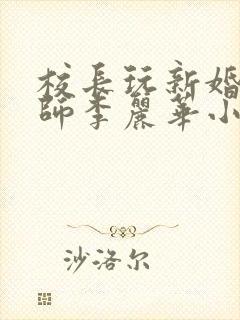 校長玩新婚
師李麗華小
沙洛尔